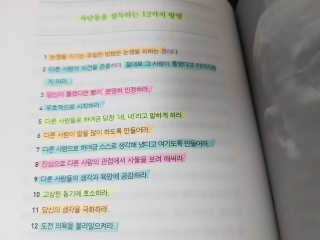 사람들을 설득하는 12가지 방법
1 논쟁을 이기는 유일한 방법은 논쟁을 피하는 것이다.
2 다른 사람의 의견을 존중하라. 절대로 그 사람이 틀렸다고 이야기하
지 마라.
3 당신이 틀렸다면 빨리, 분명히 인정하라.
4 우호적으로 시작하라.
5 다른 사람들로 하여금 당장 '네, 네'라고 말하게 하라.
6 다른 사람이 말을 많이 하도록 만들어라.
7 다른 사람으로 하여금 스스로 생각해 냈다고 여기도록 만들어라.
8 진심으로 다른 사람의 관점에서 사물을 보려 애써라.
9 다른 사람들의 생각과 욕망에 공감하라.
10 고상한 동기에 호소하라.
11 당신의 생각을 극화하라.
12 도전 의욕을 불러일으켜라.